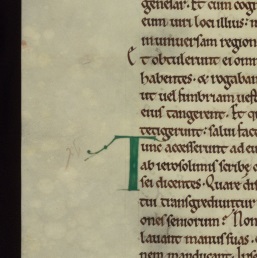 generar. Et cum cogn
eum uiri loci illius: m
in uniuersam region
Et obtulerunt ei omn
habentes. & rogaban
ut uel fimbriam uest
eius tangerent. Et qu
tetigerunt: salui fact
Tunc accesserunt ad eu
ab ierosolimis scribe &
sei dicentes. Quare dis
tui transgrediuntur
ones seniorum? Non
lauant manus suas. c
nem manducant. Ipse